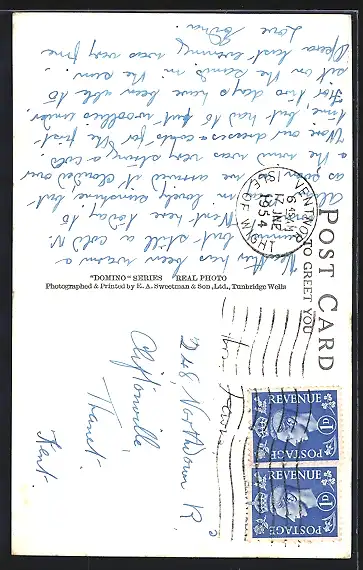 POST CARD
VENTNOR
ISLE OF WIGHT
6 45PM
17 JNE
1954
TO GREET YOU
REVENUE
1D
POSTAGE
REVENUE
1D
POSTAGE
"DOMINO" SERIES REAL PHOTO
Photographed & Printed by K. A. Sweetman & Son, Ltd., Tunbridge Wells
Weather has been warm &
sunny but still a cold N.
Went here today to
in lovely sunshine but
as soon as we arrived it clouded over
& the wind was very strong & cold.
Wore our dresses & coats for the first
time, but had to put woollies under.
For two days have been able to
sit on the sands in the sun.
Opera last evening was very fine
Love Edna.
D48, Northdown R
Cliftonville,
Thanet.
Kent.